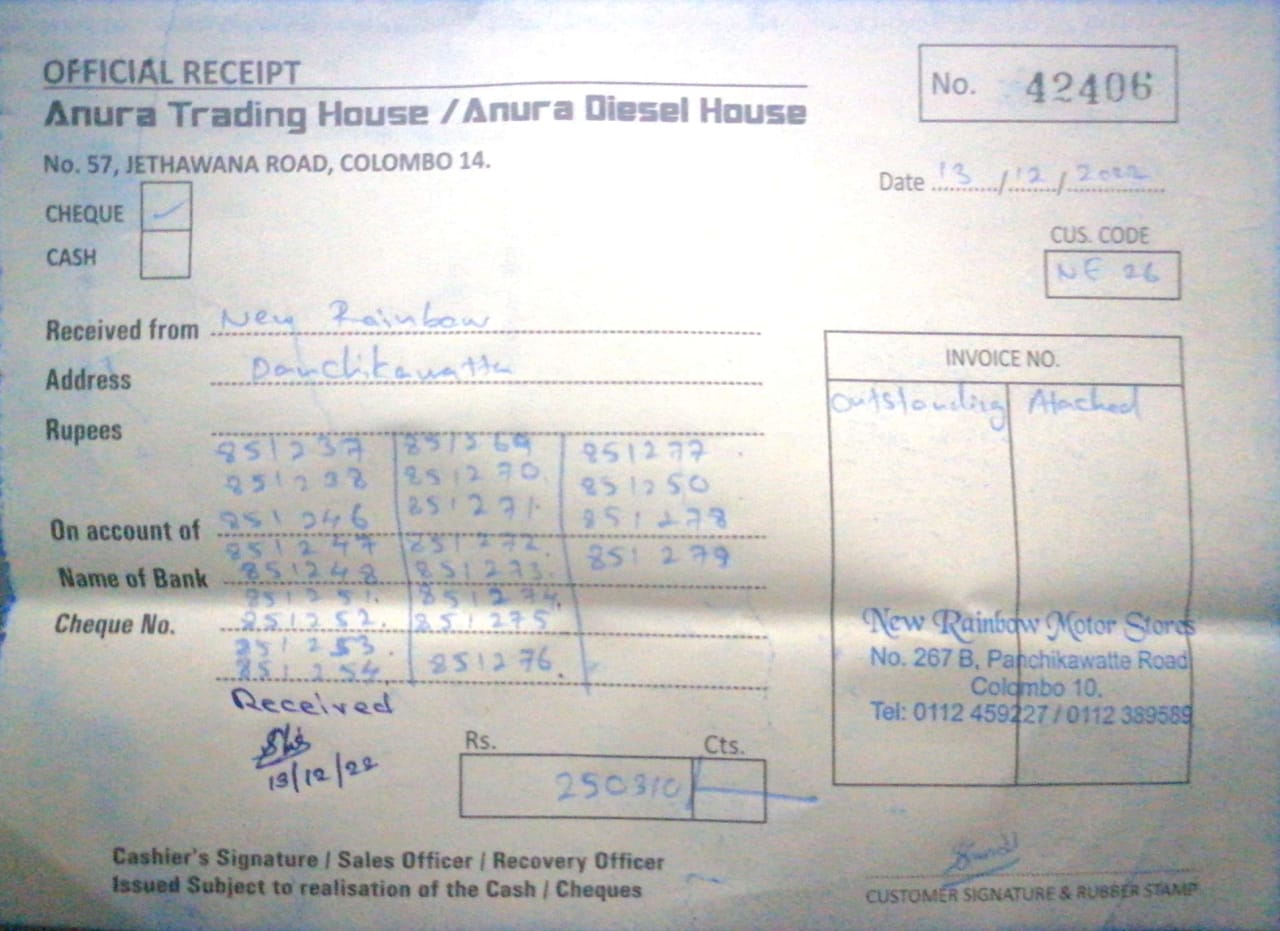 OFFICIAL RECEIPT
Anura Trading House / Anura Diesel House
No. 57, JETHAWANA ROAD, COLOMBO 14.
No. 42406
Date 13/12/2022
CHEQUE ✓
CASH
CUS. CODE
NE 26
Received from New Rainbow
Address Panchikawatta
Rupees
851237 851269 851277
851238 851270 851250
851246 851271 851278
On account of
851247 851272 851279
Name of Bank 851248 851273
851251 851274
Cheque No. 851252 851275
851253
851254 851276
INVOICE NO.
Outstanding Atached
New Rainbow Motor Stores
No. 267 B, Panchikawatte Road
Colombo 10.
Tel: 0112 459227 / 0112 389589
Received
13/12/22
Rs. Cts.
250310/-
Cashier's Signature / Sales Officer / Recovery Officer
Issued Subject to realisation of the Cash / Cheques
CUSTOMER SIGNATURE & RUBBER STAMP